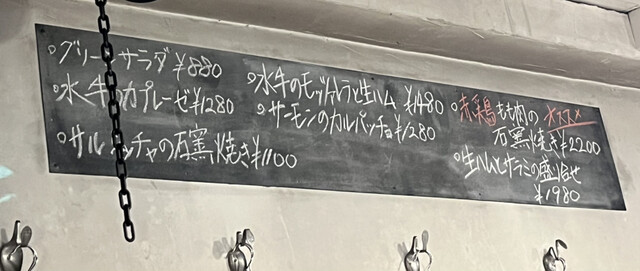 グリーンサラダ ¥880
水牛のカプレーゼ ¥1280
サルシッチャの石窯焼き ¥1100
水牛のモッツァレラと生ハム ¥1480
サーモンのカルパッチョ ¥1280
赤鶏もも肉の オススメ
石窯焼き ¥2200
生ハムとサラミの盛り合せ
¥1980